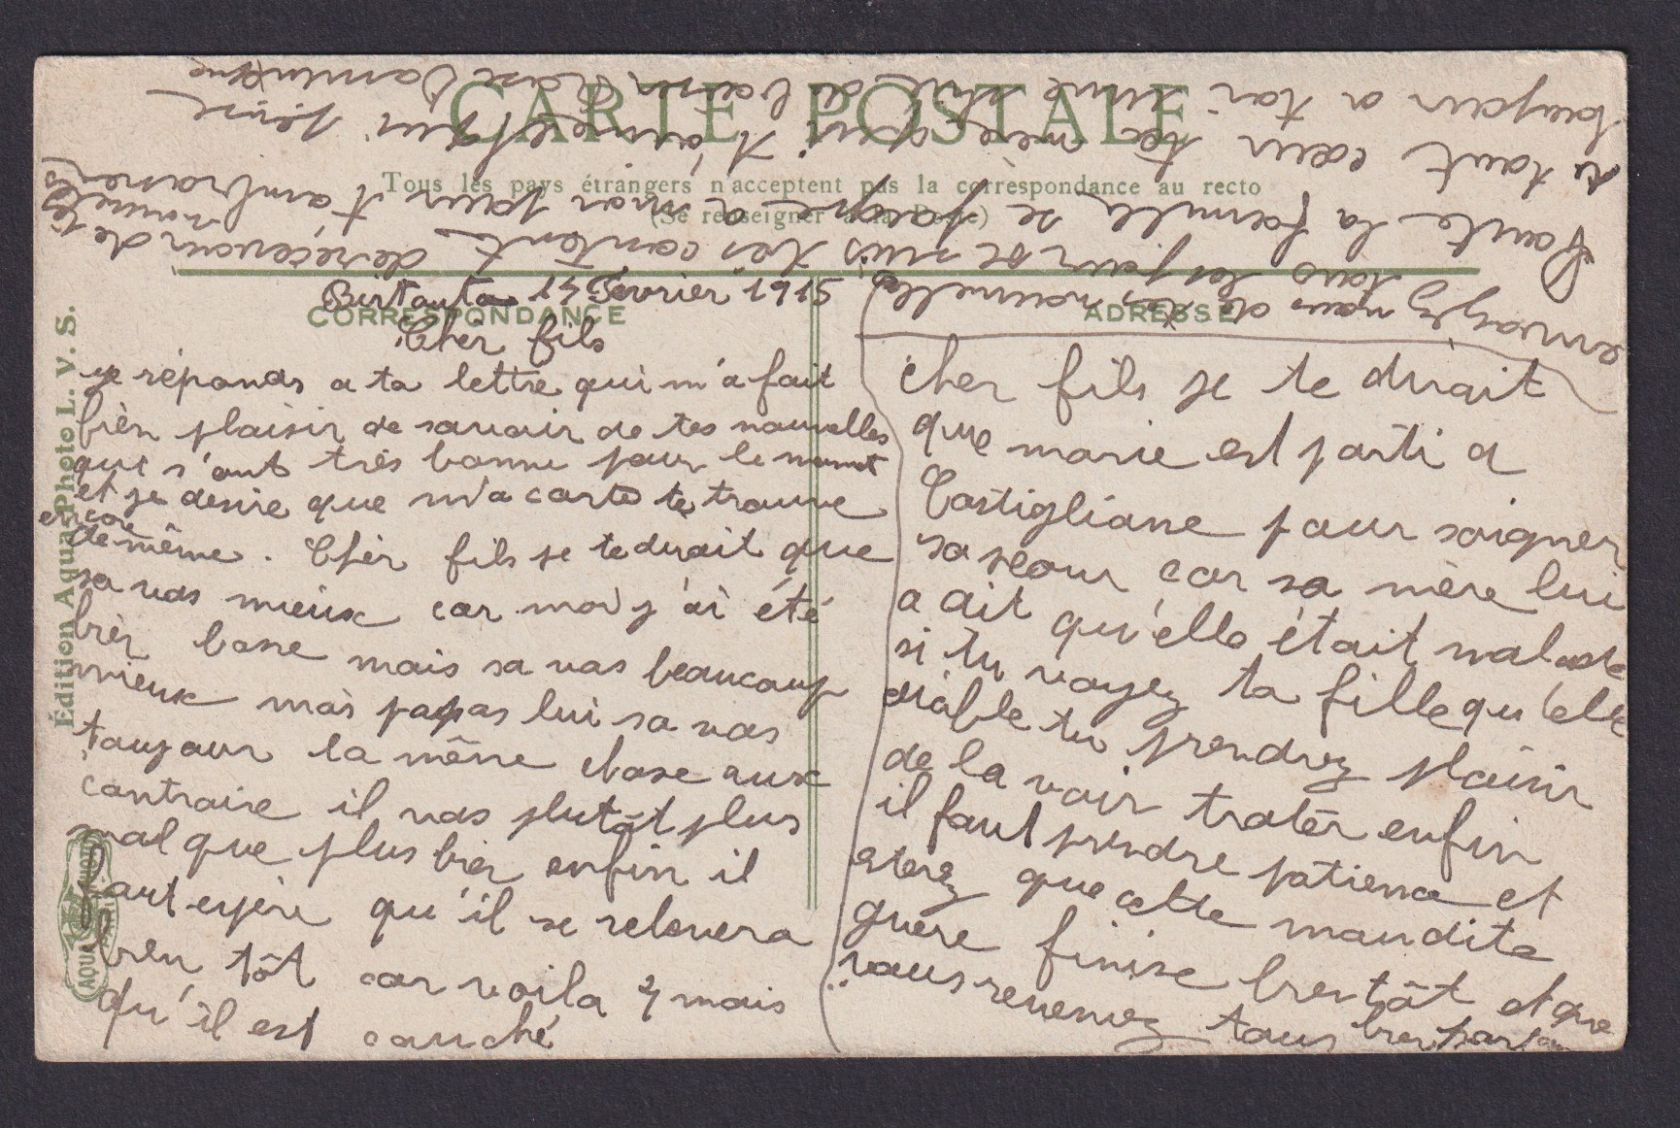 CARTE POSTALE
Tous les pays étrangers n'acceptent pas la correspondance au recto
(Se renseigner à la Poste)
CORRESPONDANCE
ADRESSE
Édition Aqua-Photo L. V. S.
14 Fevrier 1915
Cher fils
je réponds a ta lettre qui m'a fait
bièn plaisir de savoir de tes nouvelles
qui s'ont très bonne pour le
et je desire que m'a carte te trouve
encore
de même. Chèr fils je te dirait que
sa vas mieux car moi j'ai été
bièn basse mais sa vas beaucoup
mieux mais papas lui sa vas
toujour la même chose aux
contraire il vas plutôt plus
mal que plus bien enfin il
faut espère qu'il se relevera
bien tôt car voila 4 mois
qu'il est couché
cher fils je te dirait
que marie est parti a
Castigliane pour soigner
sa soeur car sa mère lui
a dit qu'elle était malade
si tu voyez ta fille qu'elle
diable tu prendrez plaisir
de la voir trotér enfin
il faut prendre patience et
que cette maudite
guere finise bientôt et que
vous revenez tous bien
envoyez nous de tes nouvelles
tous les jour je suis tes contente de récevoir de tes
nouvelles
toute la famille se joigne a moi pour t'ambrasser
de tout cœur ta mère qui t'aime et qui pense
toujour a toi